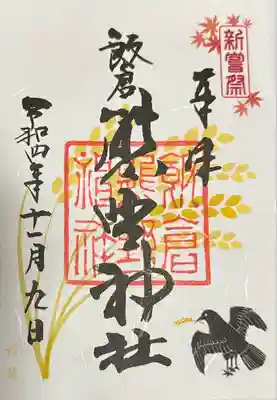 新嘗祭
奉拝
飯倉
熊野神社
飯倉
熊野
神社
令和四年十一月九日